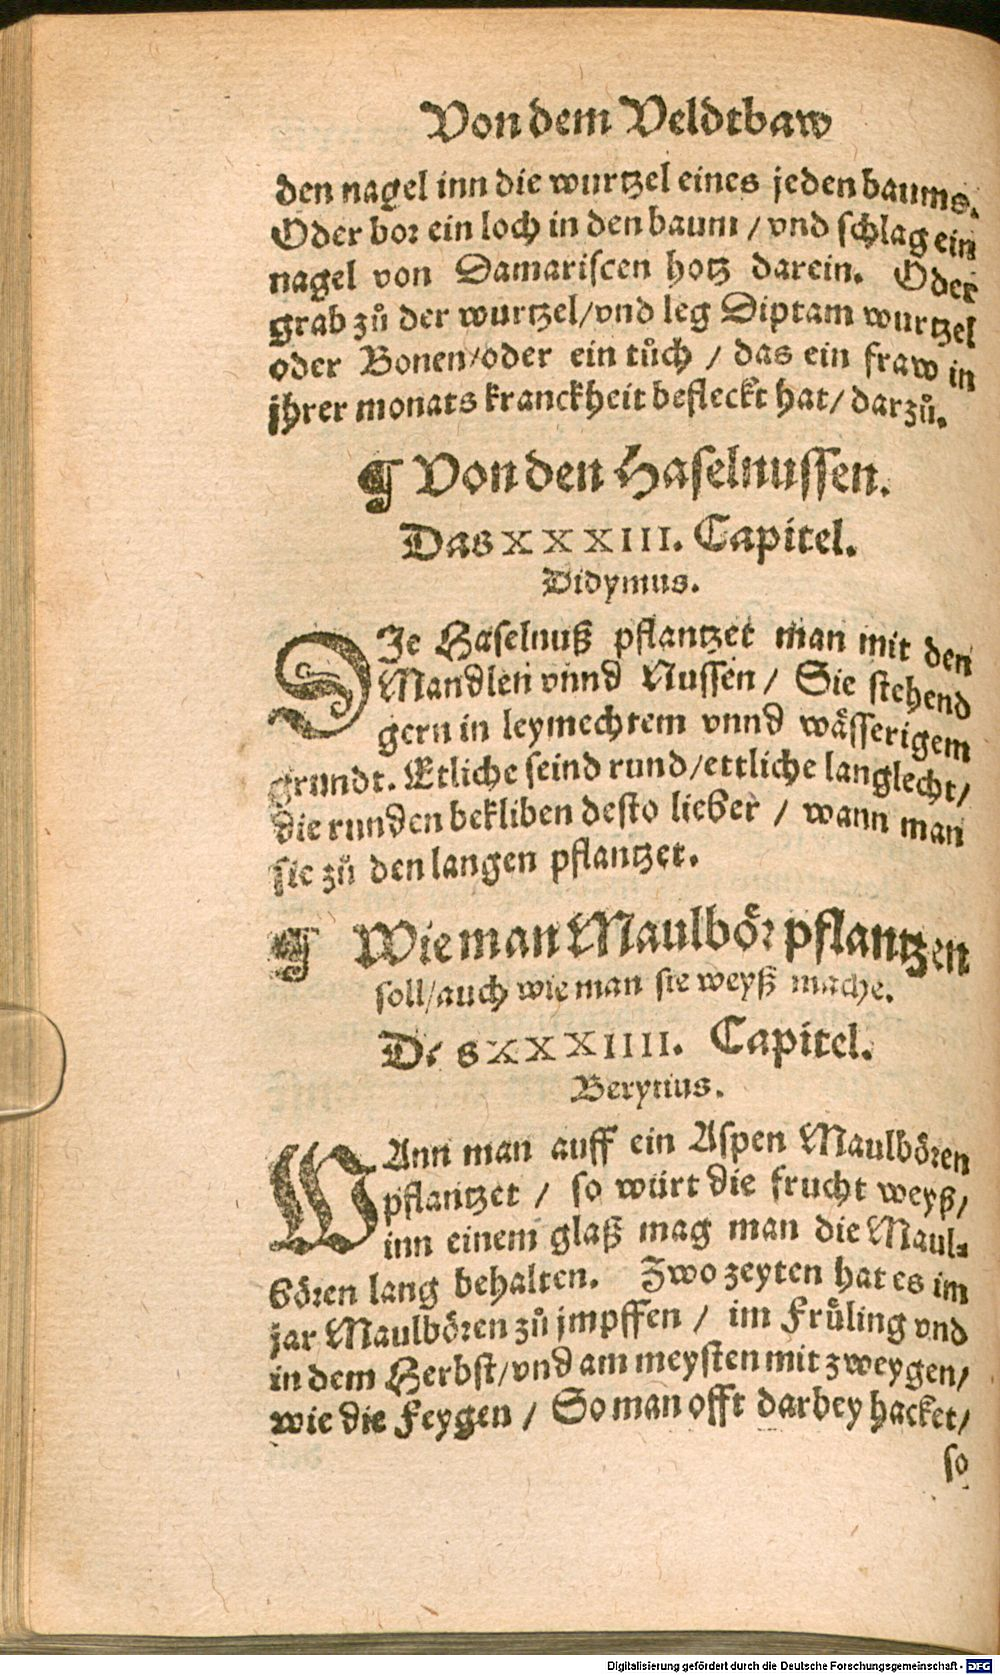 Von dem Veldtbaw
den nagel inn die wurtzel eines jeden baums.
Oder bor ein loch in den baum / vnd schlag ein
nagel von Damariscen hotz darein. Oder
grab zů der wurtzel/vnd leg Diptam wurtzel
oder Bonen/oder ein tůch / das ein fraw in
jhrer monats kranckheit befleckt hat/ darzů.
¶ Von den Haselnussen.
Das XXXIII. Capitel.
Didymus.
DIe Haselnuß pflantzet man mit den
Mandlen vnnd Nussen / Sie stehend
gern in leymechtem vnnd wässerigem
grundt. Etliche seind rund/ettliche langlecht/
die runden bekliben desto lieber / wann man
sie zů den langen pflantzet.
¶ Wie man Maulbör pflantzen
soll/auch wie man sie weyß mache.
Das XXXIIII. Capitel.
Berytius.
WAnn man auff ein Aspen Maulbören
pflantzet / so würt die frucht weyß/
inn einem glaß mag man die Maul-
bören lang behalten. Zwo zeyten hat es im
jar Maulbören zů jmpffen / im Frůling vnd
in dem Herbst/vnd am meysten mit zweygen/
wie die Feygen / So man offt darbey hacket/
so
Digitalisierung gefördert durch die Deutsche Forschungsgemeinschaft - DFG